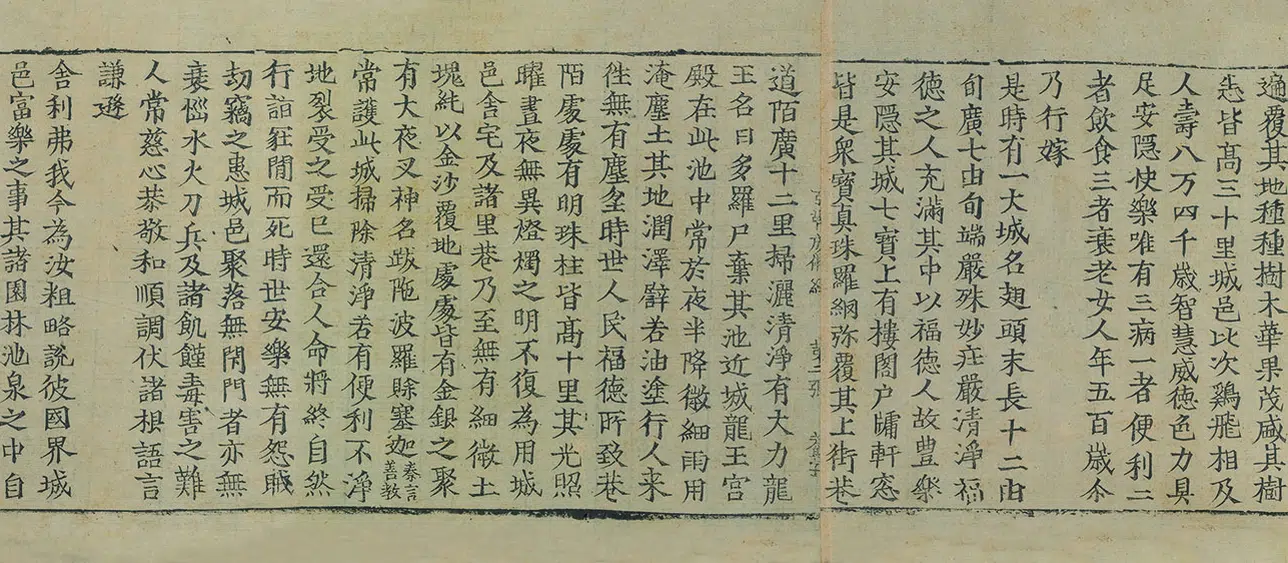 遍覆其地種種樹木華果茂盛其樹
悉皆髙三十里城邑比次鷄飛相及
人壽八万四千歳智慧威德色力具
足安隠快樂唯有三病一者便利二
者飲食三者衰老女人年五百歳尒
乃行嫁
是時有一大城名翅頭末長十二由
旬廣七由旬端嚴殊妙莊嚴清淨福
德之人充滿其中以福德人故豊樂
安隠其城七寶上有樓閣户牖軒窓
皆是衆寶真珠羅網弥覆其上街巷
道陌廣十二里掃灑清淨有大力龍
王名曰多羅尸棄其池近城龍王宫
殿在此池中常於夜半降微細雨用
淹塵土其地潤澤譬若油塗行人来
徃無有塵坌時世人民福德所致巷
陌處處有明珠柱皆髙十里其光照
曜晝夜無異燈燭之明不復為用城
邑舍宅及諸里巷乃至無有細微土
塊純以金沙覆地處處皆有金銀之聚
有大夜叉神名跋陁波羅賒塞迦秦言善教
常護此城掃除清淨若有便利不淨
地裂受之受已還合人命將終自然
行詣冢間而死時世安樂無有怨賊
劫竊之患城邑聚落無閇門者亦無
衰惱水火刀兵及諸飢饉毒害之難
人常慈心恭敬和順調伏諸根語言
謙遜
舍利弗我今為汝粗略說彼國界城
邑富樂之事其諸園林池泉之中自